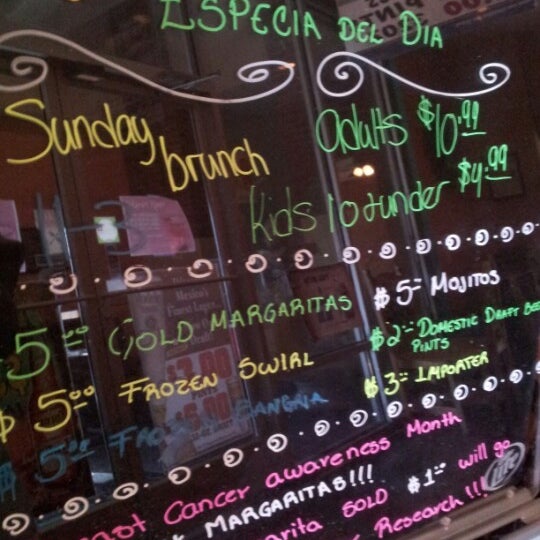 ESPECIA DEL DIA
Sunday brunch
Adults $10.99
Kids 10 & under $4.99
$5.00 GOLD MARGARITAS
$5.00 FROZEN SWIRL
$5.00 FROZEN SANGRIA
$5.00 MOJITOS
$2.00 DOMESTIC DRAFT BEER
PINTS
$3.00 IMPORTER
Cancer awareness Month
MARGARITAS!!!
SOLD $1.00 will go
Research!!!
Lite